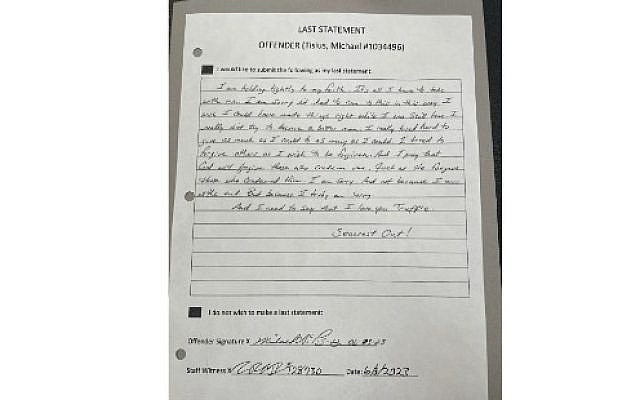 LAST STATEMENT
OFFENDER (Tisius, Michael #1034496)
I would like to submit the following as my last statement:
I am holding tightly to my faith. It's all I have to take
with me. I am sorry it had to come to this in this way. I
wish I could have made things right while I was still here. I
really did try to become a better man. I really tried hard to
give as much as I could to as many as I could. I tried to
forgive others as I wish to be forgiven. And I pray that
God will forgive those who condemn me. Just as He forgave
those who condemned Him. I am sorry. And not because I am
at the end. But because I truly am sorry.
And I need to say that I love you Truffle.
Seacrest Out!
I do not wish to make a last statement:
Offender Signature X
Staff Witness X Date: 6/6/2023